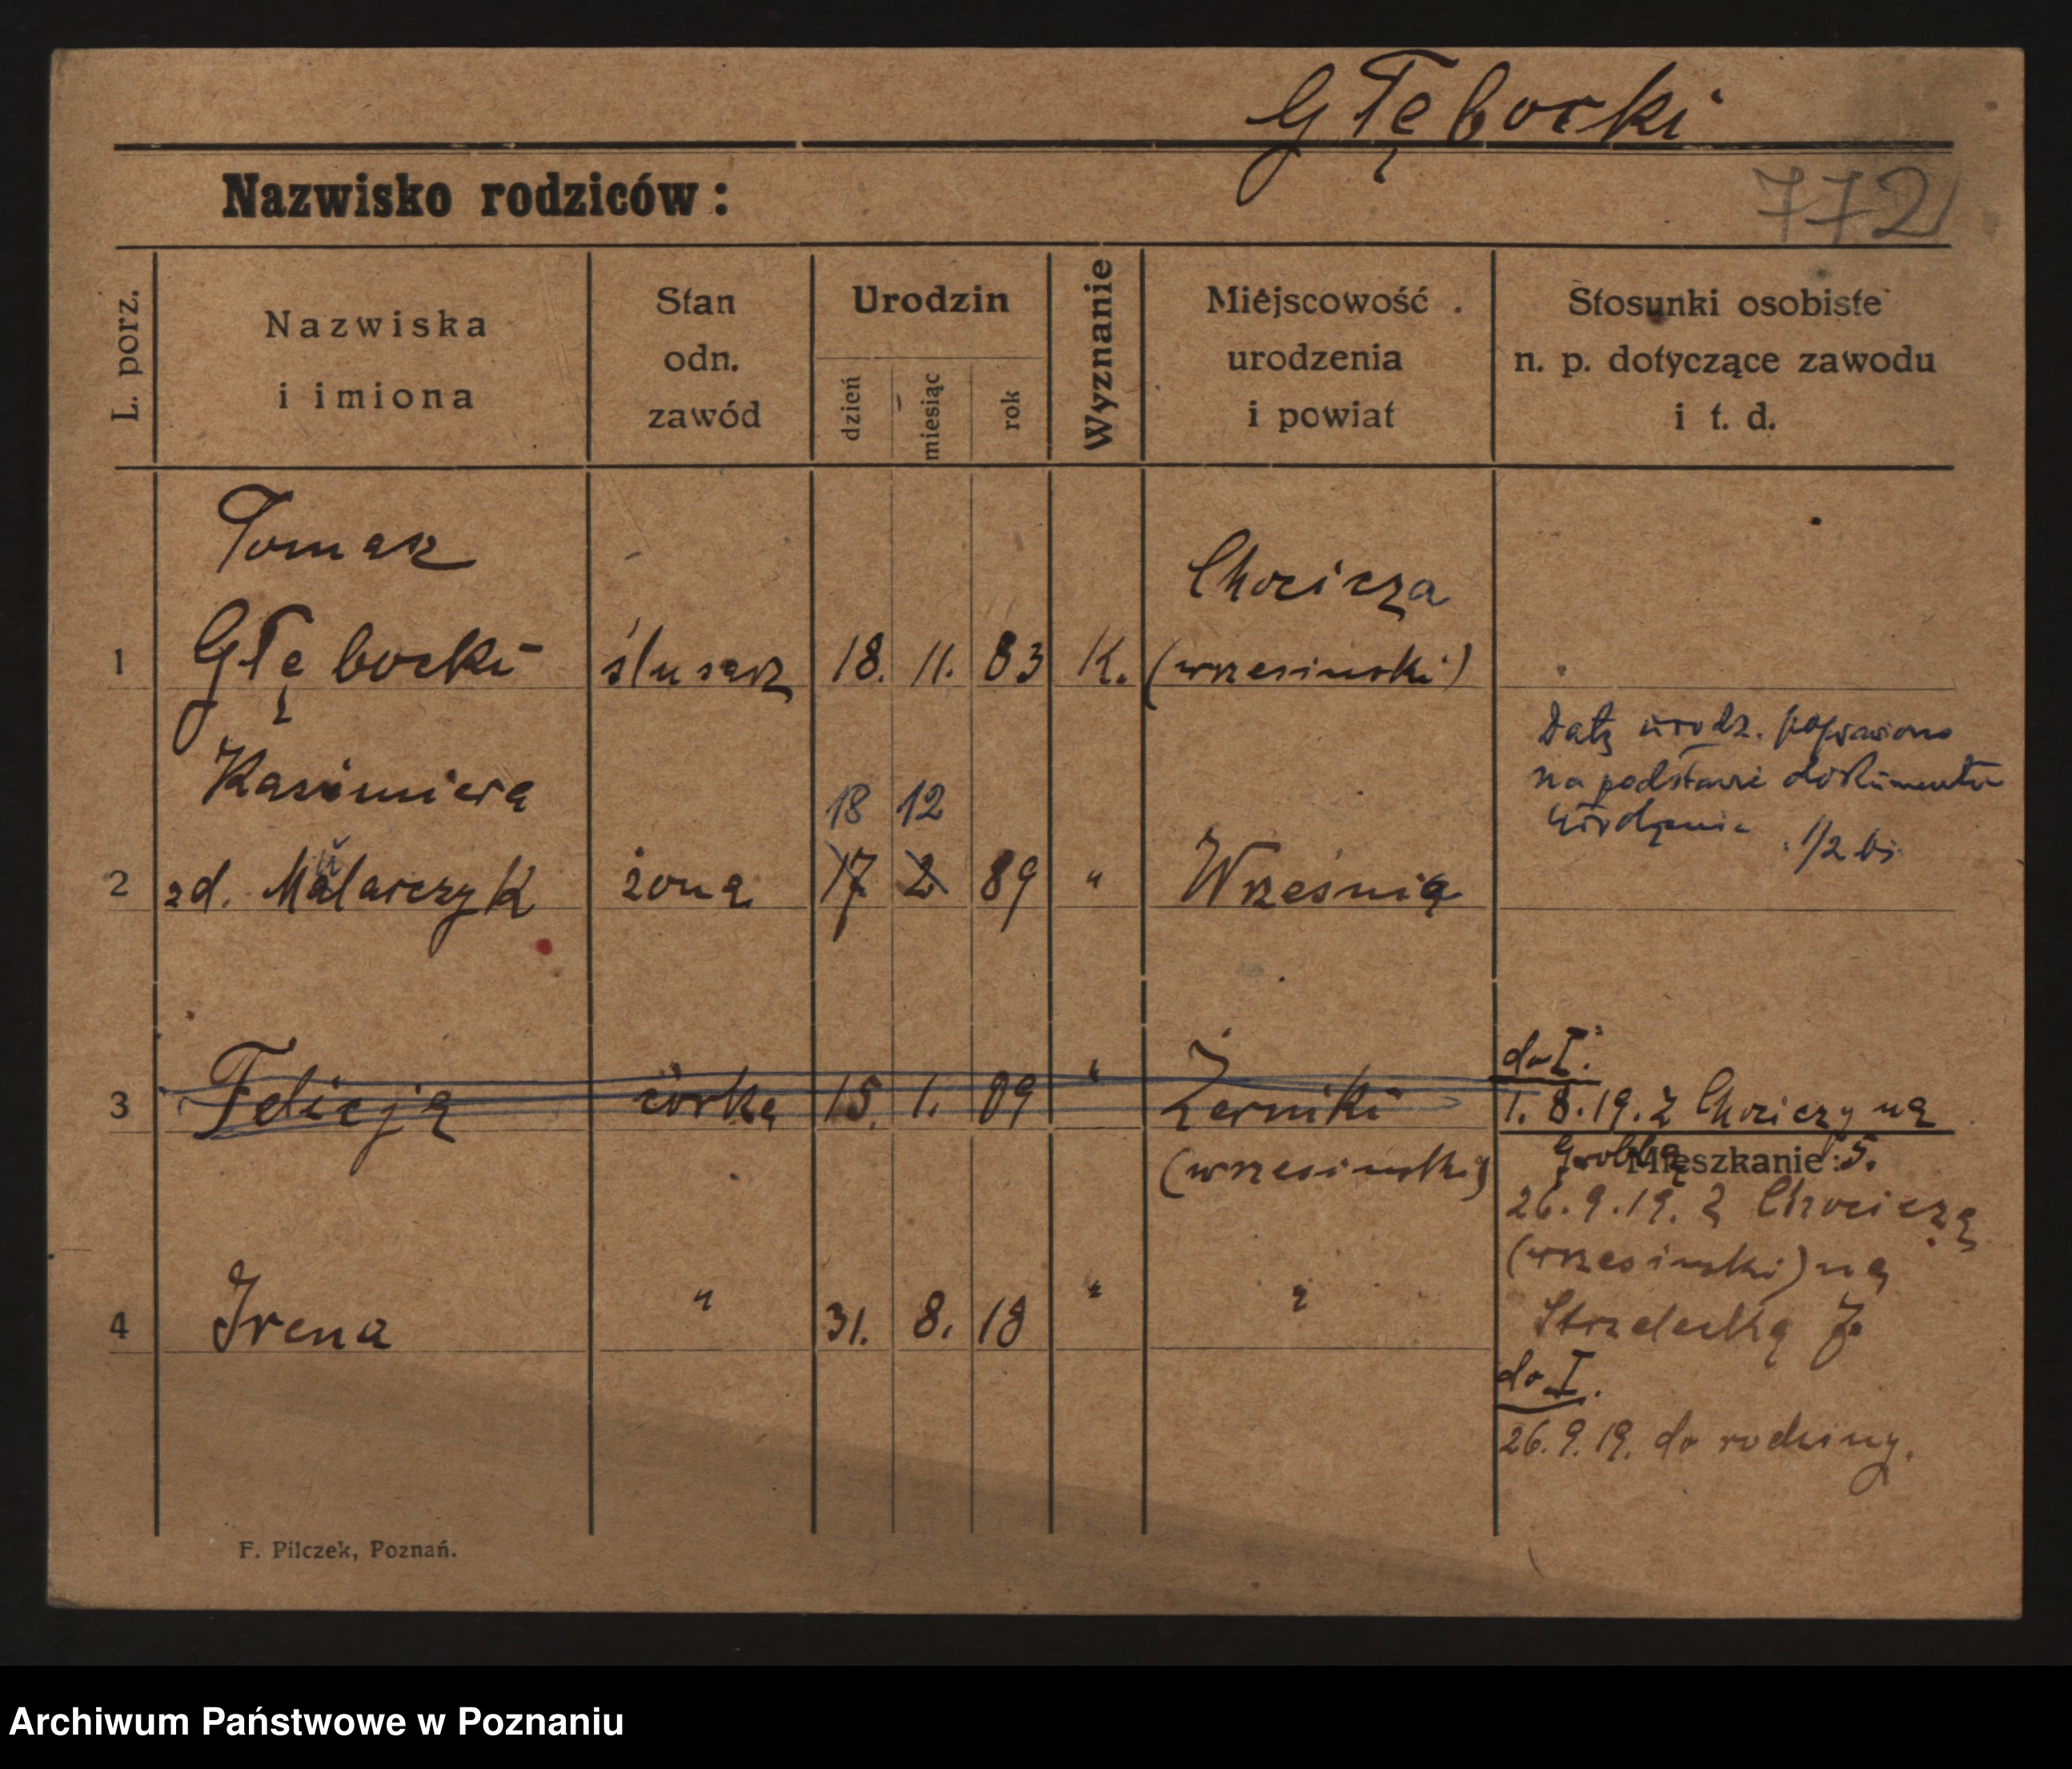 Głębocki
Nazwisko rodziców:
772
L. porz.
Nazwiska
i imiona
Stan
odn.
zawód
Urodzin
dzień
miesiąc
rok
Wyznanie
Miejscowość
urodzenia
i powiat
Stosunki osobiste
n. p. dotyczące zawodu
i t. d.
Tomasz
Chocicza
1 Głębocki ślusarz 18. 11. 83 K. (wrzesinski)
Datę urodz. poprawiono
na podstawie dokumentu
urodzenia
Kasimiera
18 12
2 zd. Malarczyk żona 17 2 89 " Wrześnią
do I.
3 Felicja córka 15. 1. 09 " Zerniki 1. 8. 19. z Chociczy na
Groblą 5.
Mieszkanie:
(wrzesinski)
26. 9. 19. z Chocicza
(wrzesinski) na
4 Irena " 31. 8. 18 " "
Strzelecką 7.
do I.
26. 9. 19. do rodziny.
F. Pilczek, Poznań.
Archiwum Państwowe w Poznaniu